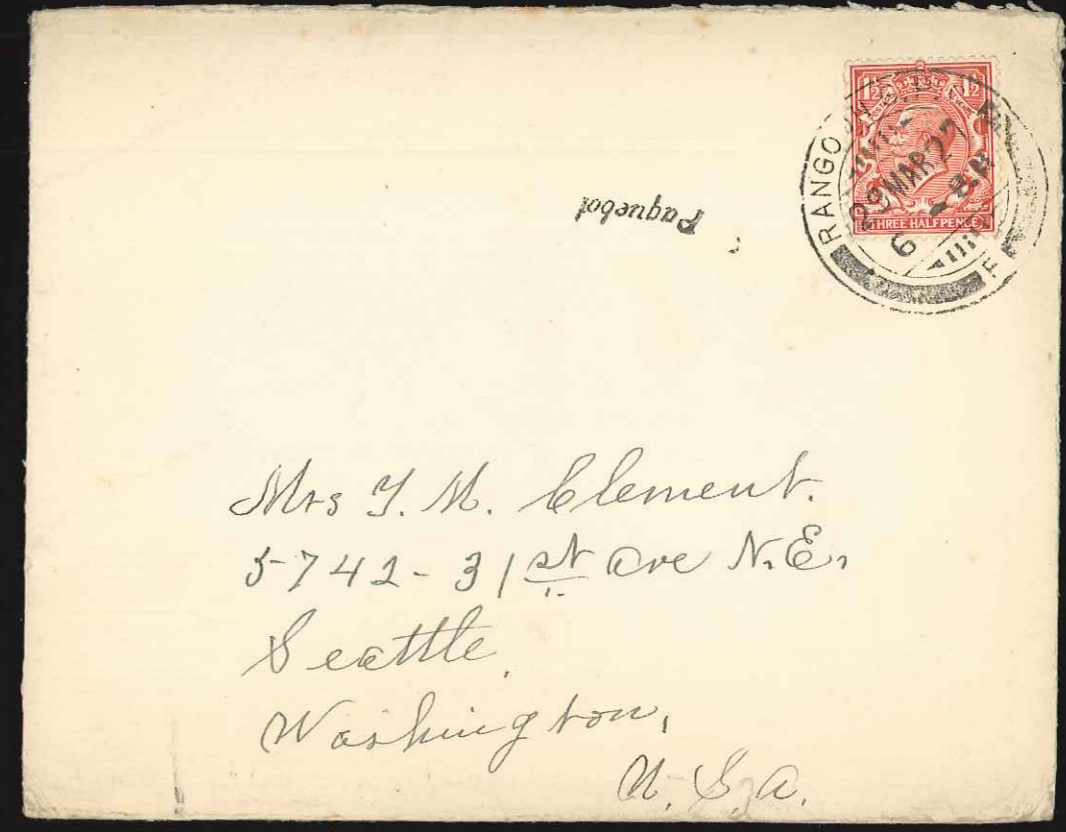 1½ 1½
THREE HALFPENCE
RANGOON G.P.O.
29 MAR 27
6
Paquebot
Mrs Y. M. Clement.
5742-31st ave N.E.
Seattle,
Washington,
U.S.A.